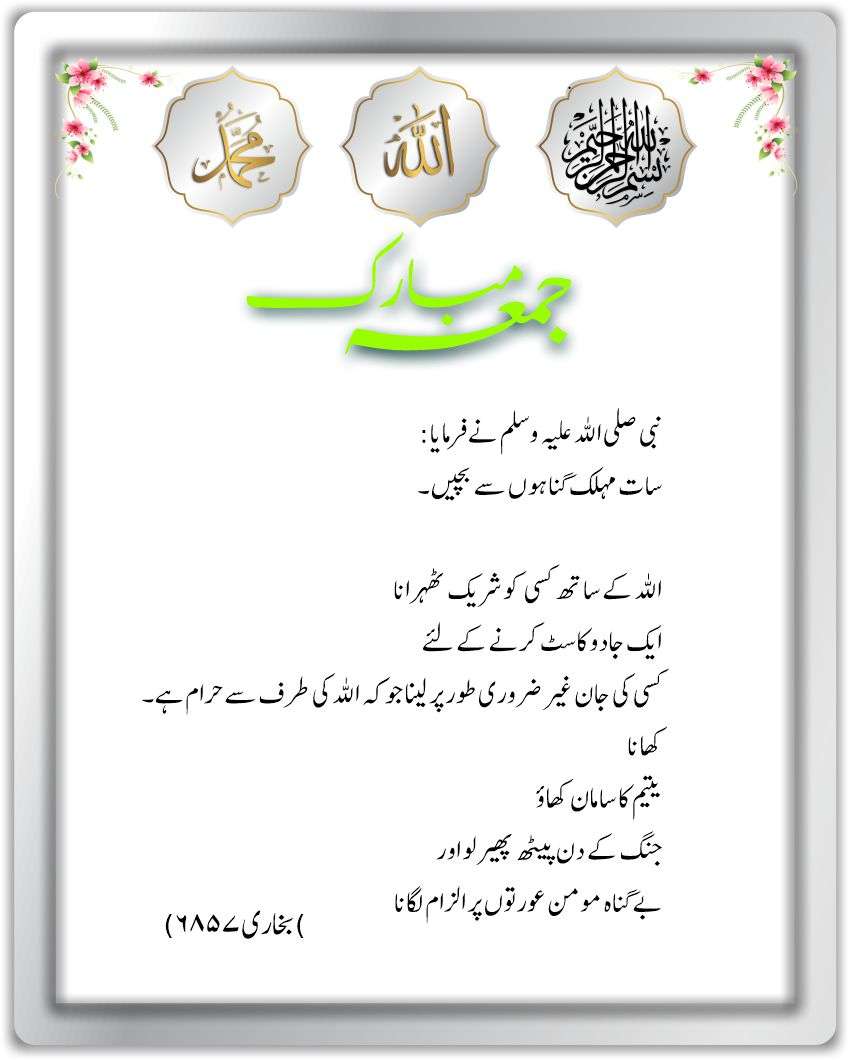 بسم الله الرحمن الرحيم
الله
محمد
جمعہ مبارک
نبی صلی اللہ علیہ وسلم نے فرمایا:
سات مہلک گناہوں سے بچیں۔
اللہ کے ساتھ کسی کو شریک ٹھہرانا
ایک جادو کاسٹ کرنے کے لئے
کسی کی جان غیر ضروری طور پر لینا جو کہ اللہ کی طرف سے حرام ہے۔
کھانا
یتیم کا سامان کھاؤ
جنگ کے دن پیٹھ پھیر لو اور
بے گناہ مومن عورتوں پر الزام لگانا
(بخاری ۶۸۵۷)